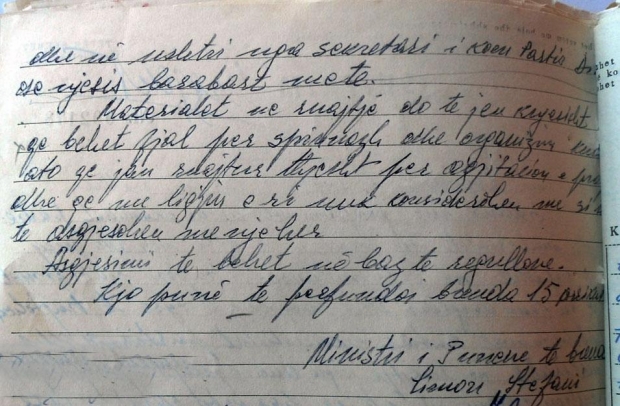 dhe në ushtri nga sekretari i kom Partis
ose njesis barabart me te.
Materialet ne ruajtje do te jen kryesisht
qe behet fjal per spiunazh dhe organizim
ato qe jan ruajtur thjesht per agjitacion e
dhe qe me ligjin e ri nuk konsiderohen me
te asgjesohen menjeher
Asgjesimi te behet në baz te regullore.
Kjo punë te perfundoj brenda 15
Ministri i Puneve te brend
Simon Stefani